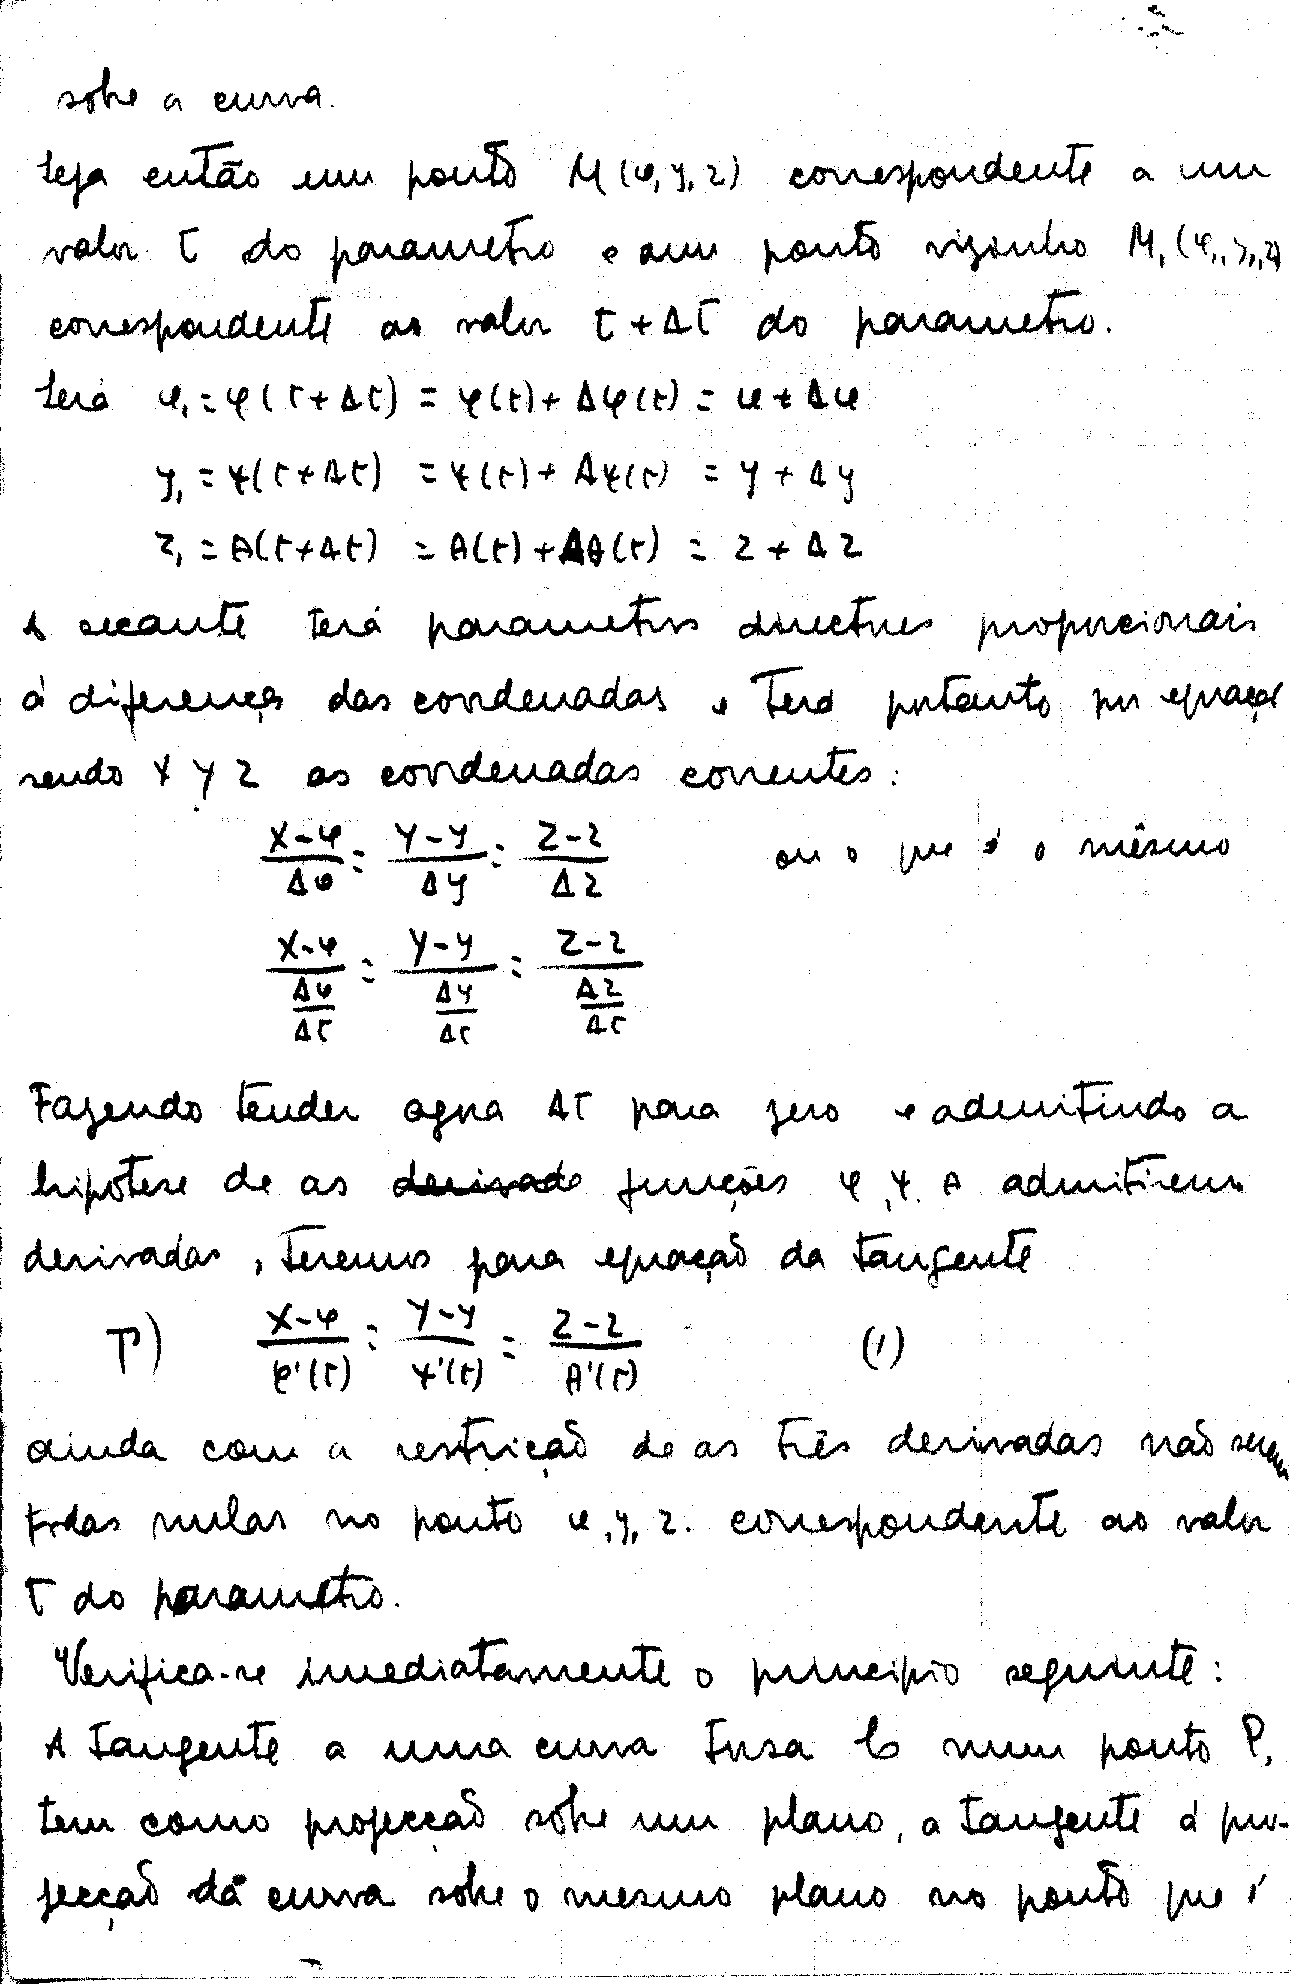 sobre a curva.
Seja então um ponto M(x, y, z) correspondente a um
valor t do parametro e a um ponto vizinho M₁(x₁, y₁, z₁)
correspondente ao valor t + Δt do parametro.
Será x₁ = φ(t+Δt) = φ(t) + Δφ(t) = x + Δx
y₁ = ψ(t+Δt) = ψ(t) + Δψ(t) = y + Δy
z₁ = θ(t+Δt) = θ(t) + Δθ(t) = z + Δz
A secante terá parametros directores proporcionais
á diferença das coordenadas e terá portanto por equação
sendo X Y Z as coordenadas correntes:
(X-x)/Δx = (Y-y)/Δy = (Z-z)/Δz ou o que é o mêsmo
(X-x)/(Δx/Δt) = (Y-y)/(Δy/Δt) = (Z-z)/(Δz/Δt)
Fazendo tender agora Δt para zero e admitindo a
hipótese de as derivado funções φ, ψ, θ admitirem
derivadas, teremos para equação da tangente
T) (X-x)/φ'(t) = (Y-y)/ψ'(t) = (Z-z)/θ'(t) (1)
ainda com a restricção de as três derivadas não serem
todas nulas no ponto x, y, z. correspondente ao valor
t do parametro.
Verifica-se imediatamente o principio seguinte:
A tangente a uma curva torsa C num ponto P,
tem como projecção sobre um plano, a tangente á pro-
jecção da curva sobre o mesmo plano no ponto que é